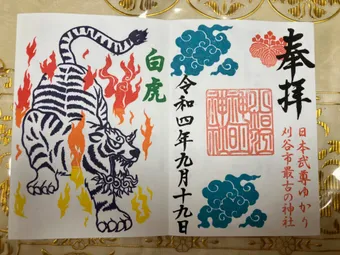 奉拝
日本武尊ゆかり
刈谷市最古の神社
小垣江
神明
神社
令和四年九月十九日
白虎